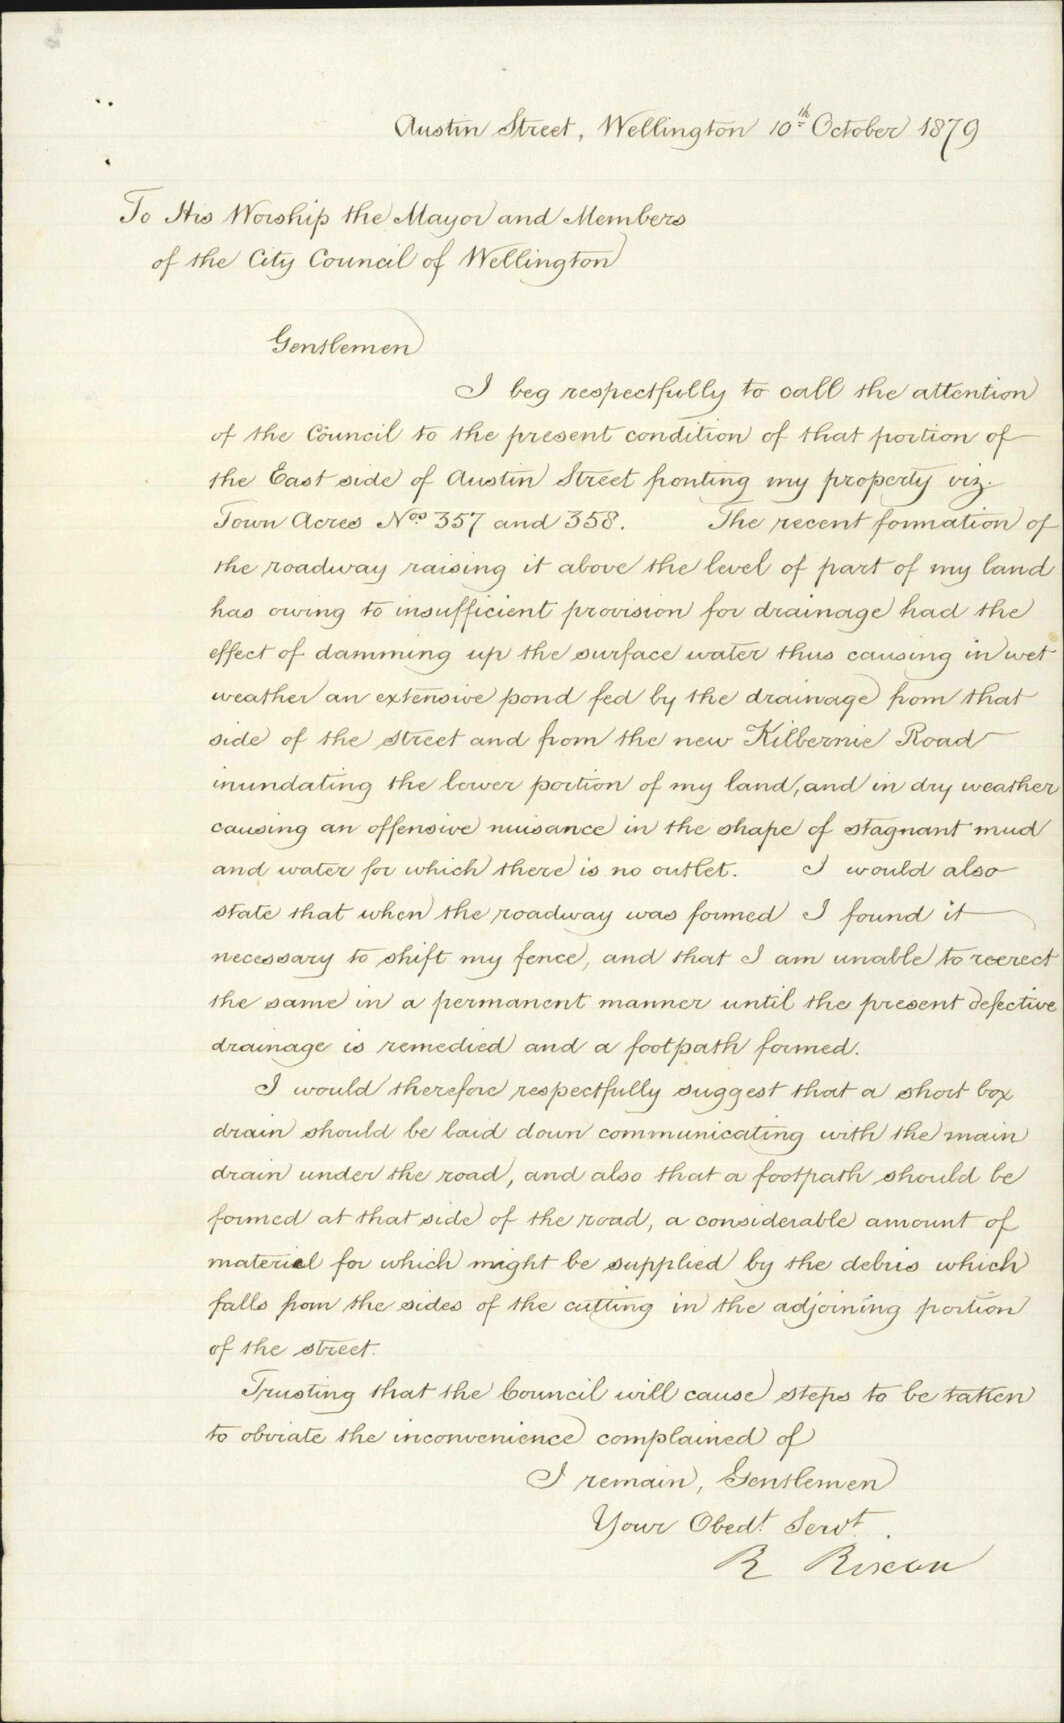 Austin Street, Wellington 10th October 1879
To His Worship the Mayor and Members
of the City Council of Wellington
Gentlemen
I beg respectfully to call the attention
of the Council to the present condition of that portion of
the East side of Austin Street fronting my property viz.
Town Acres Nos 357 and 358. The recent formation of
the roadway raising it above the level of part of my land
has owing to insufficient provision for drainage had the
effect of damming up the surface water thus causing in wet
weather an extensive pond fed by the drainage from that
side of the street and from the new Kilbernie Road
inundating the lower portion of my land, and in dry weather
causing an offensive nuisance in the shape of stagnant mud
and water for which there is no outlet. I would also
state that when the roadway was formed I found it
necessary to shift my fence, and that I am unable to reerect
the same in a permanent manner until the present defective
drainage is remedied and a footpath formed.
I would therefore respectfully suggest that a short box
drain should be laid down communicating with the main
drain under the road, and also that a footpath should be
formed at that side of the road, a considerable amount of
material for which might be supplied by the debris which
falls from the sides of the cutting in the adjoining portion
of the street.
Trusting that the Council will cause steps to be taken
to obviate the inconvenience complained of
I remain, Gentlemen
Your Obedt. Servt.
R Rixon